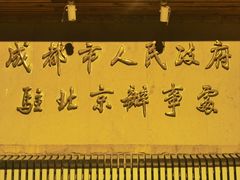 成都市人民政府
駐北京辦事處